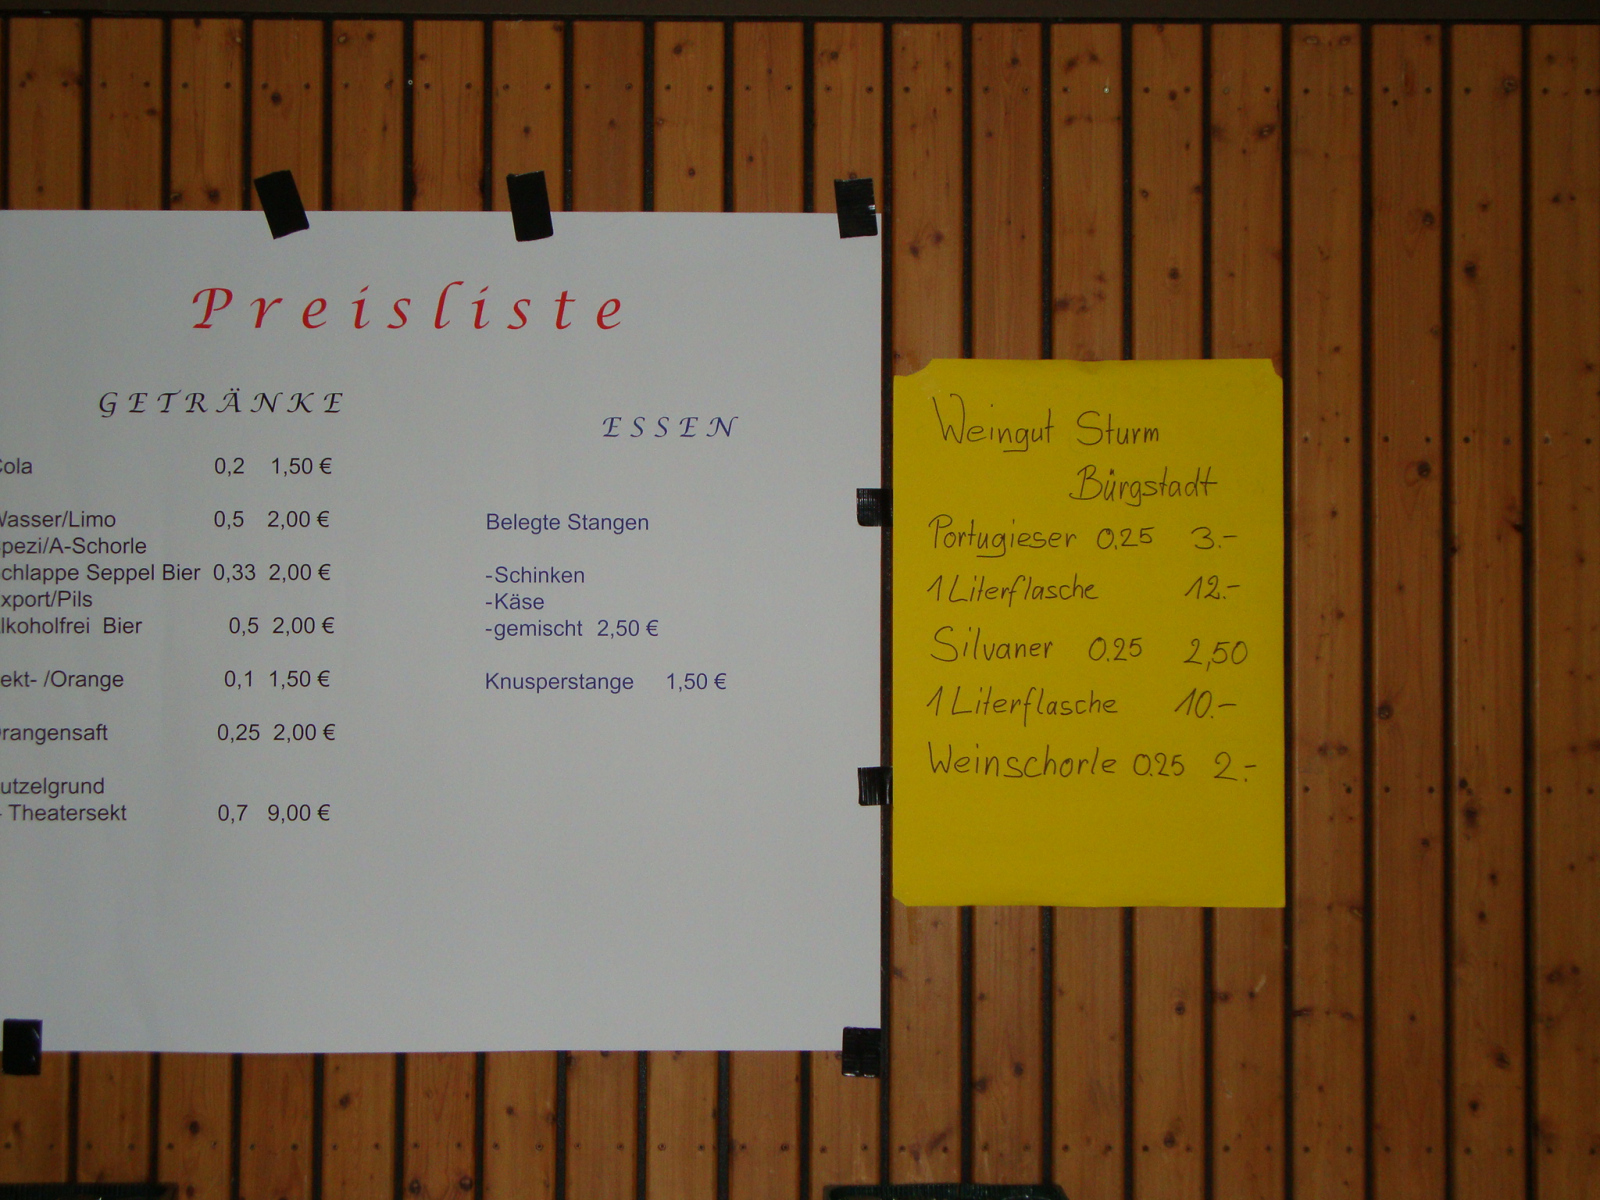 Preisliste
GETRÄNKE
Cola 0,2 1,50 €
Wasser/Limo 0,5 2,00 €
Spezi/A-Schorle
Schlappe Seppel Bier 0,33 2,00 €
Export/Pils
Alkoholfrei Bier 0,5 2,00 €
Sekt- /Orange 0,1 1,50 €
Orangensaft 0,25 2,00 €
utzelgrund
- Theatersekt 0,7 9,00 €
ESSEN
Belegte Stangen
-Schinken
-Käse
-gemischt 2,50 €
Knusperstange 1,50 €
Weingut Sturm
Bürgstadt
Portugieser 0.25 3.-
1 Literflasche 12.-
Silvaner 0.25 2,50
1 Literflasche 10.-
Weinschorle 0.25 2.-